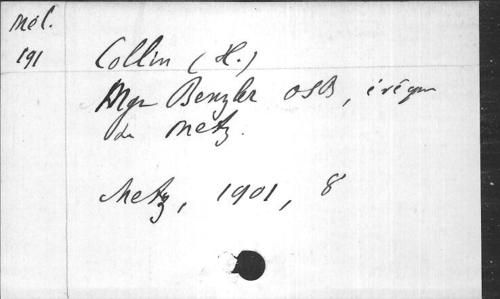 Mél.
191
Collin (H.)
Mgr Benzler OSB, évêque
de Metz.
Metz, 1901, 8°